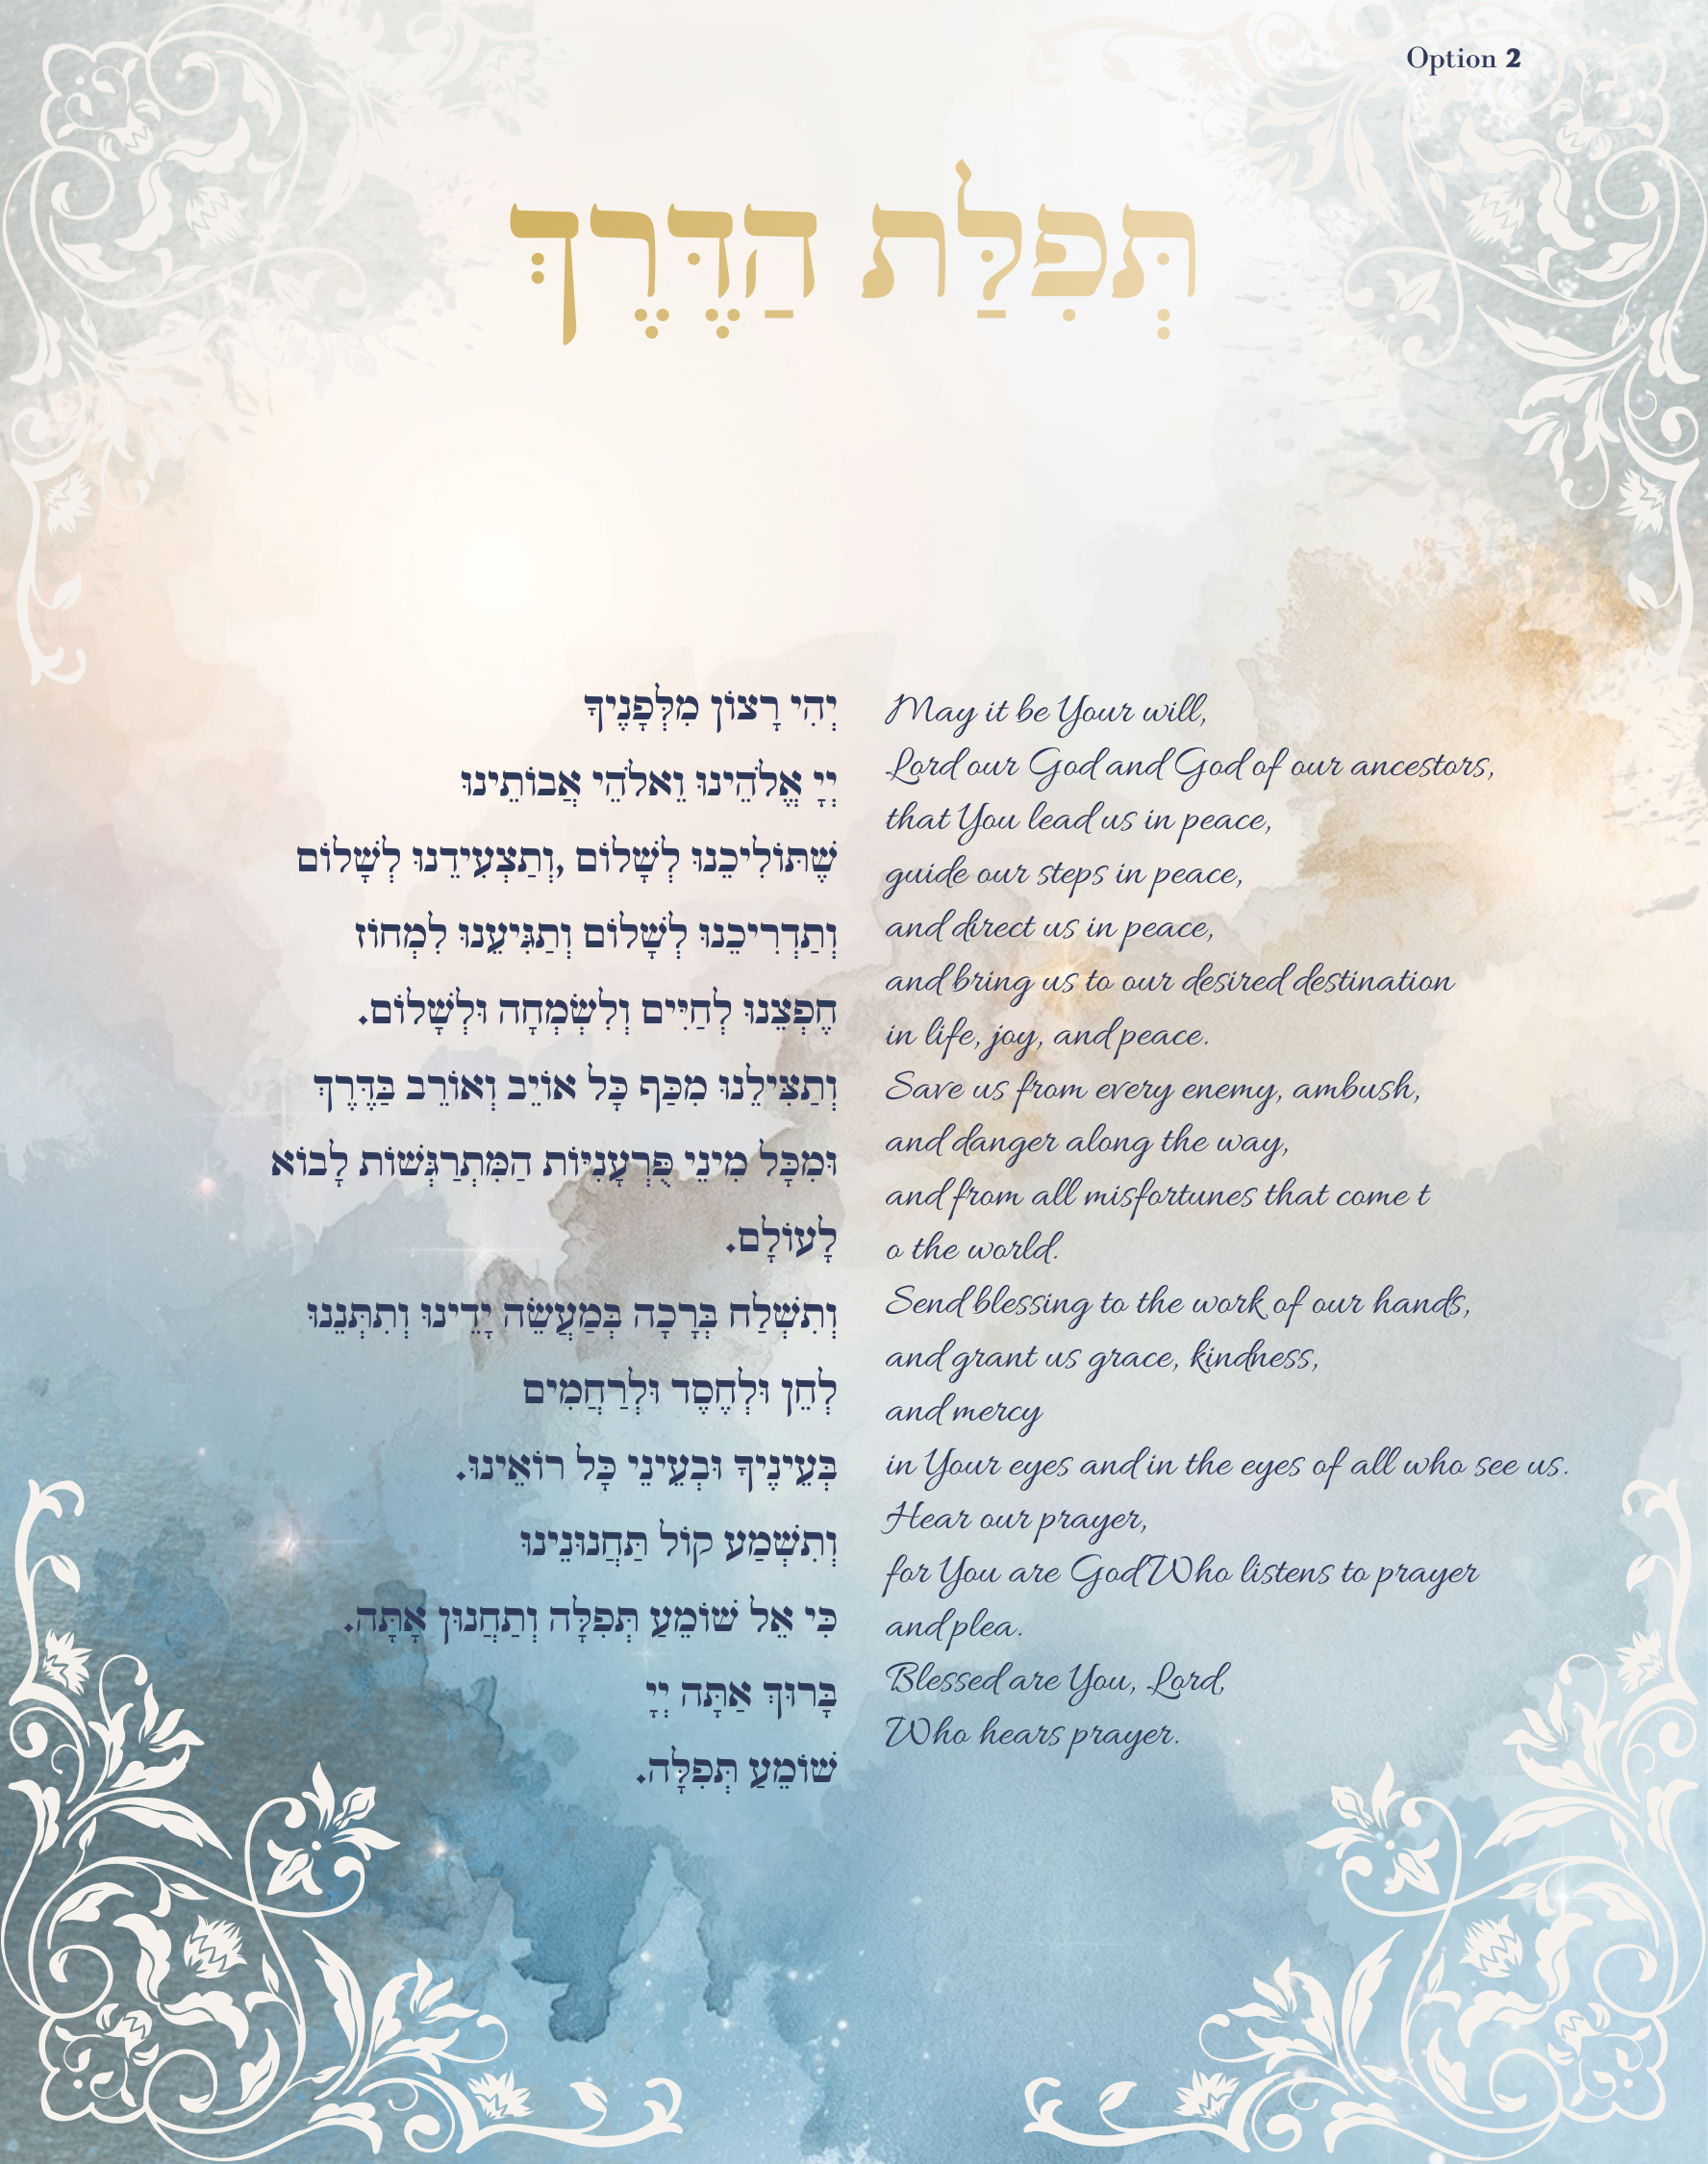 Option 2
תְּפִלַּת הַדֶּרֶךְ
יְהִי רָצוֹן מִלְּפָנֶיךָ
יְיָ אֱלֹהֵינוּ וֵאלֹהֵי אֲבוֹתֵינוּ
שֶׁתּוֹלִיכֵנוּ לְשָׁלוֹם ,וְתַצְעִידֵנוּ לְשָׁלוֹם
וְתַדְרִיכֵנוּ לְשָׁלוֹם וְתַגִּיעֵנוּ לִמְחוֹז
חֶפְצֵנוּ לְחַיִּים וְלִשְׂמְחָה וּלְשָׁלוֹם.
וְתַצִּילֵנוּ מִכַּף כָּל אוֹיֵב וְאוֹרֵב בַּדֶּרֶךְ
וּמִכָּל מִינֵי פֻּרְעָנִיּוֹת הַמִּתְרַגְּשׁוֹת לָבוֹא
לָעוֹלָם.
וְתִשְׁלַח בְּרָכָה בְּמַעֲשֵׂה יָדֵינוּ וְתִתְּנֵנוּ
לְחֵן וּלְחֶסֶד וּלְרַחֲמִים
בְּעֵינֶיךָ וּבְעֵינֵי כָּל רוֹאֵינוּ.
וְתִשְׁמַע קוֹל תַּחֲנוּנֵינוּ
כִּי אֵל שׁוֹמֵעַ תְּפִלָּה וְתַחֲנוּן אָתָּה.
בָּרוּךְ אַתָּה יְיָ
שׁוֹמֵעַ תְּפִלָּה.
May it be Your will,
Lord our God and God of our ancestors,
that You lead us in peace,
guide our steps in peace,
and direct us in peace,
and bring us to our desired destination
in life, joy, and peace.
Save us from every enemy, ambush,
and danger along the way,
and from all misfortunes that come t
o the world.
Send blessing to the work of our hands,
and grant us grace, kindness,
and mercy
in Your eyes and in the eyes of all who see us.
Hear our prayer,
for You are God Who listens to prayer
and plea.
Blessed are You, Lord,
Who hears prayer.